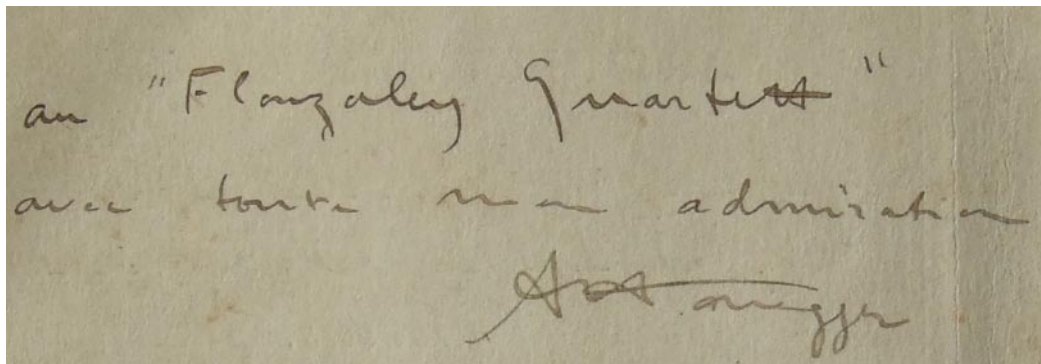 au "Flonzaley Quartett"
avec toute mon admiration
A Honegger